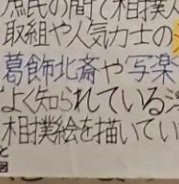 庶民の間で相撲人
取組や人気力士の
葛飾北斎や写楽
よく知られているジ
相撲絵を描いてい
と
図